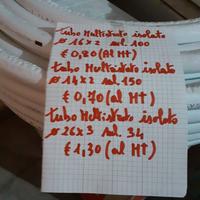 tubo Multistrato isolato
ø 16x2 sol. 100
€ 0,80 (al MT)
tubo Multistrato isolato
ø 14x2 sol. 150
€ 0,70 (al MT)
tubo Multistrato isolato
ø 26x3 sol. 34
€ 1,30 (al MT)